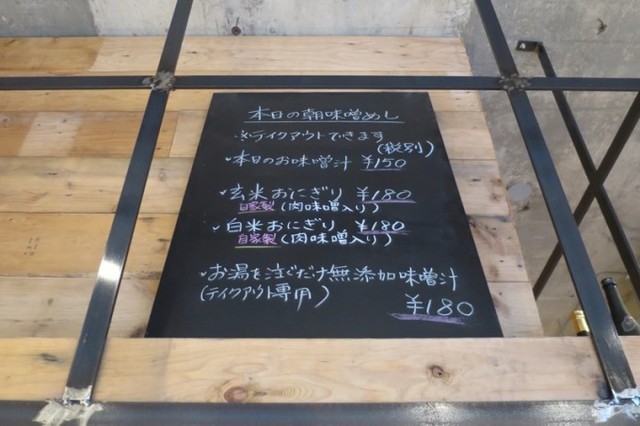 本日の朝味噌めし
※テイクアウトできます
(税別)
✓本日のお味噌汁 ¥150
✓玄米おにぎり ¥180
自家製(肉味噌入り)
✓白米おにぎり ¥180
自家製(肉味噌入り)
✓お湯を注ぐだけ無添加味噌汁
(テイクアウト専用) ¥180